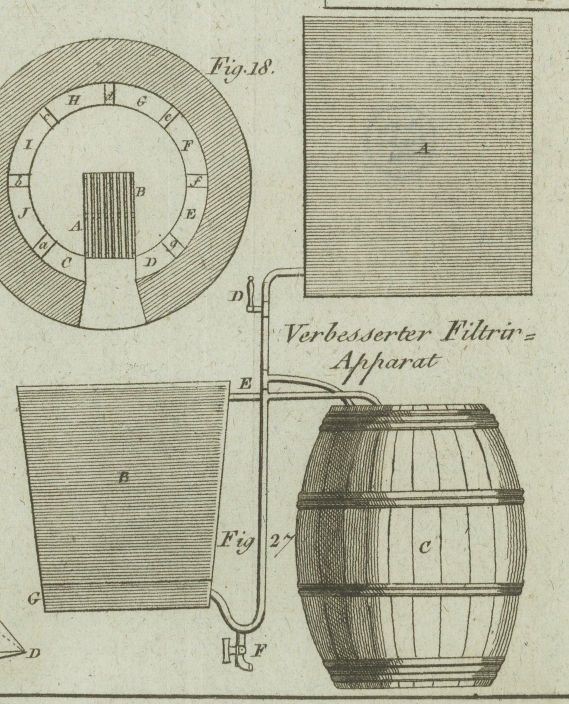 Fig. 18.
H
d
G
c
e
I
F
b
f
B
J
E
A
a
g
C
D
A
D
Verbesserter Filtrir=
Apparat
E
B
Fig 27
C
G
F
D